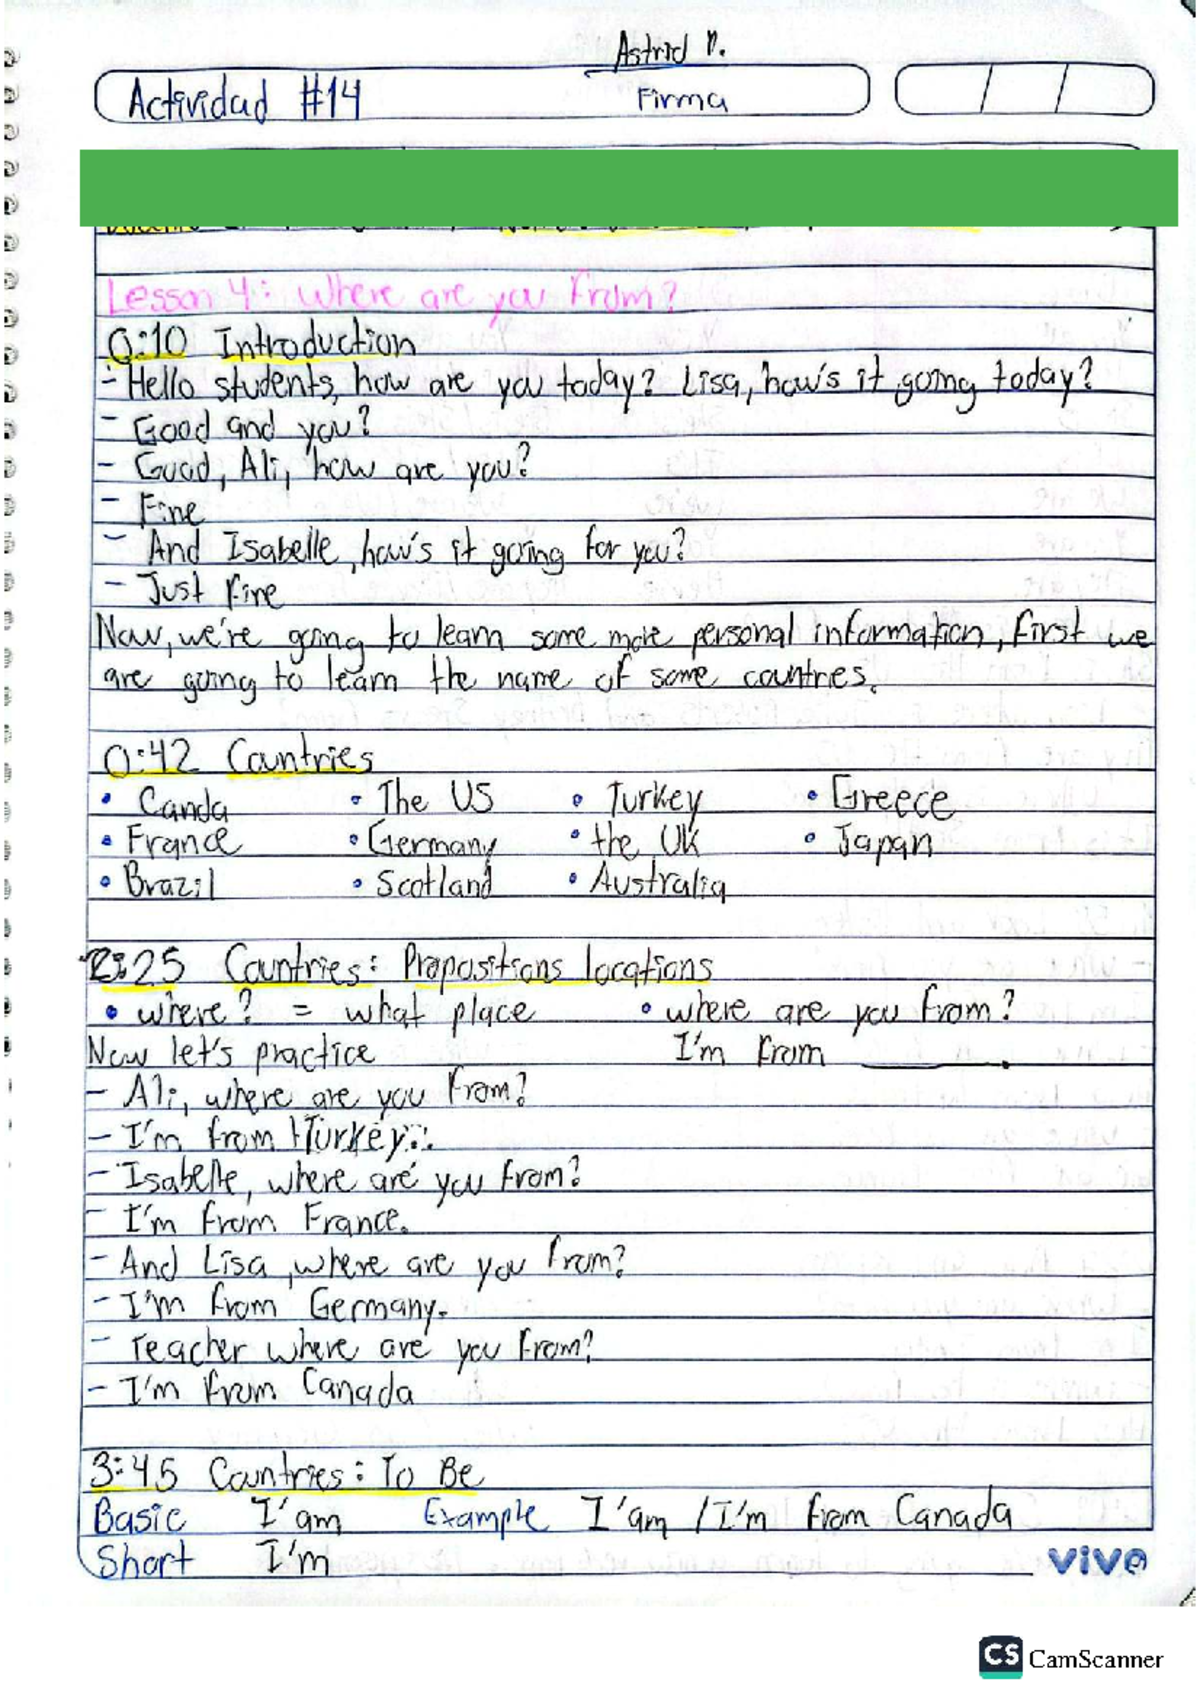 Astrid P.
Actividad #14 Firma
Lesson 4: Where are you from?
0:10 Introduction
- Hello students, how are you today? Lisa, how's it going today?
- Good and you?
- Good, Ali, how are you?
- Fine
- And Isabelle, how's it going for you?
- Just fine
Now, we're going to learn some more personal information, first we
are going to learn the name of some countries.
0:42 Countries
• Canda • The US • Turkey • Greece
• France • Germany • the UK • Japan
• Brazil • Scotland • Australia
2:25 Countries: Propositions locations
• where? = what place • where are you from?
Now let's practice I'm from ______.
- Ali, where are you from?
- I'm from Turkey.
- Isabelle, where are you from?
- I'm from France.
- And Lisa, where are you from?
- I'm from Germany.
- Teacher where are you from?
- I'm from Canada
3:45 Countries: To Be
Basic I'am Example I'am / I'm from Canada
Short I'm
vive
CS CamScanner